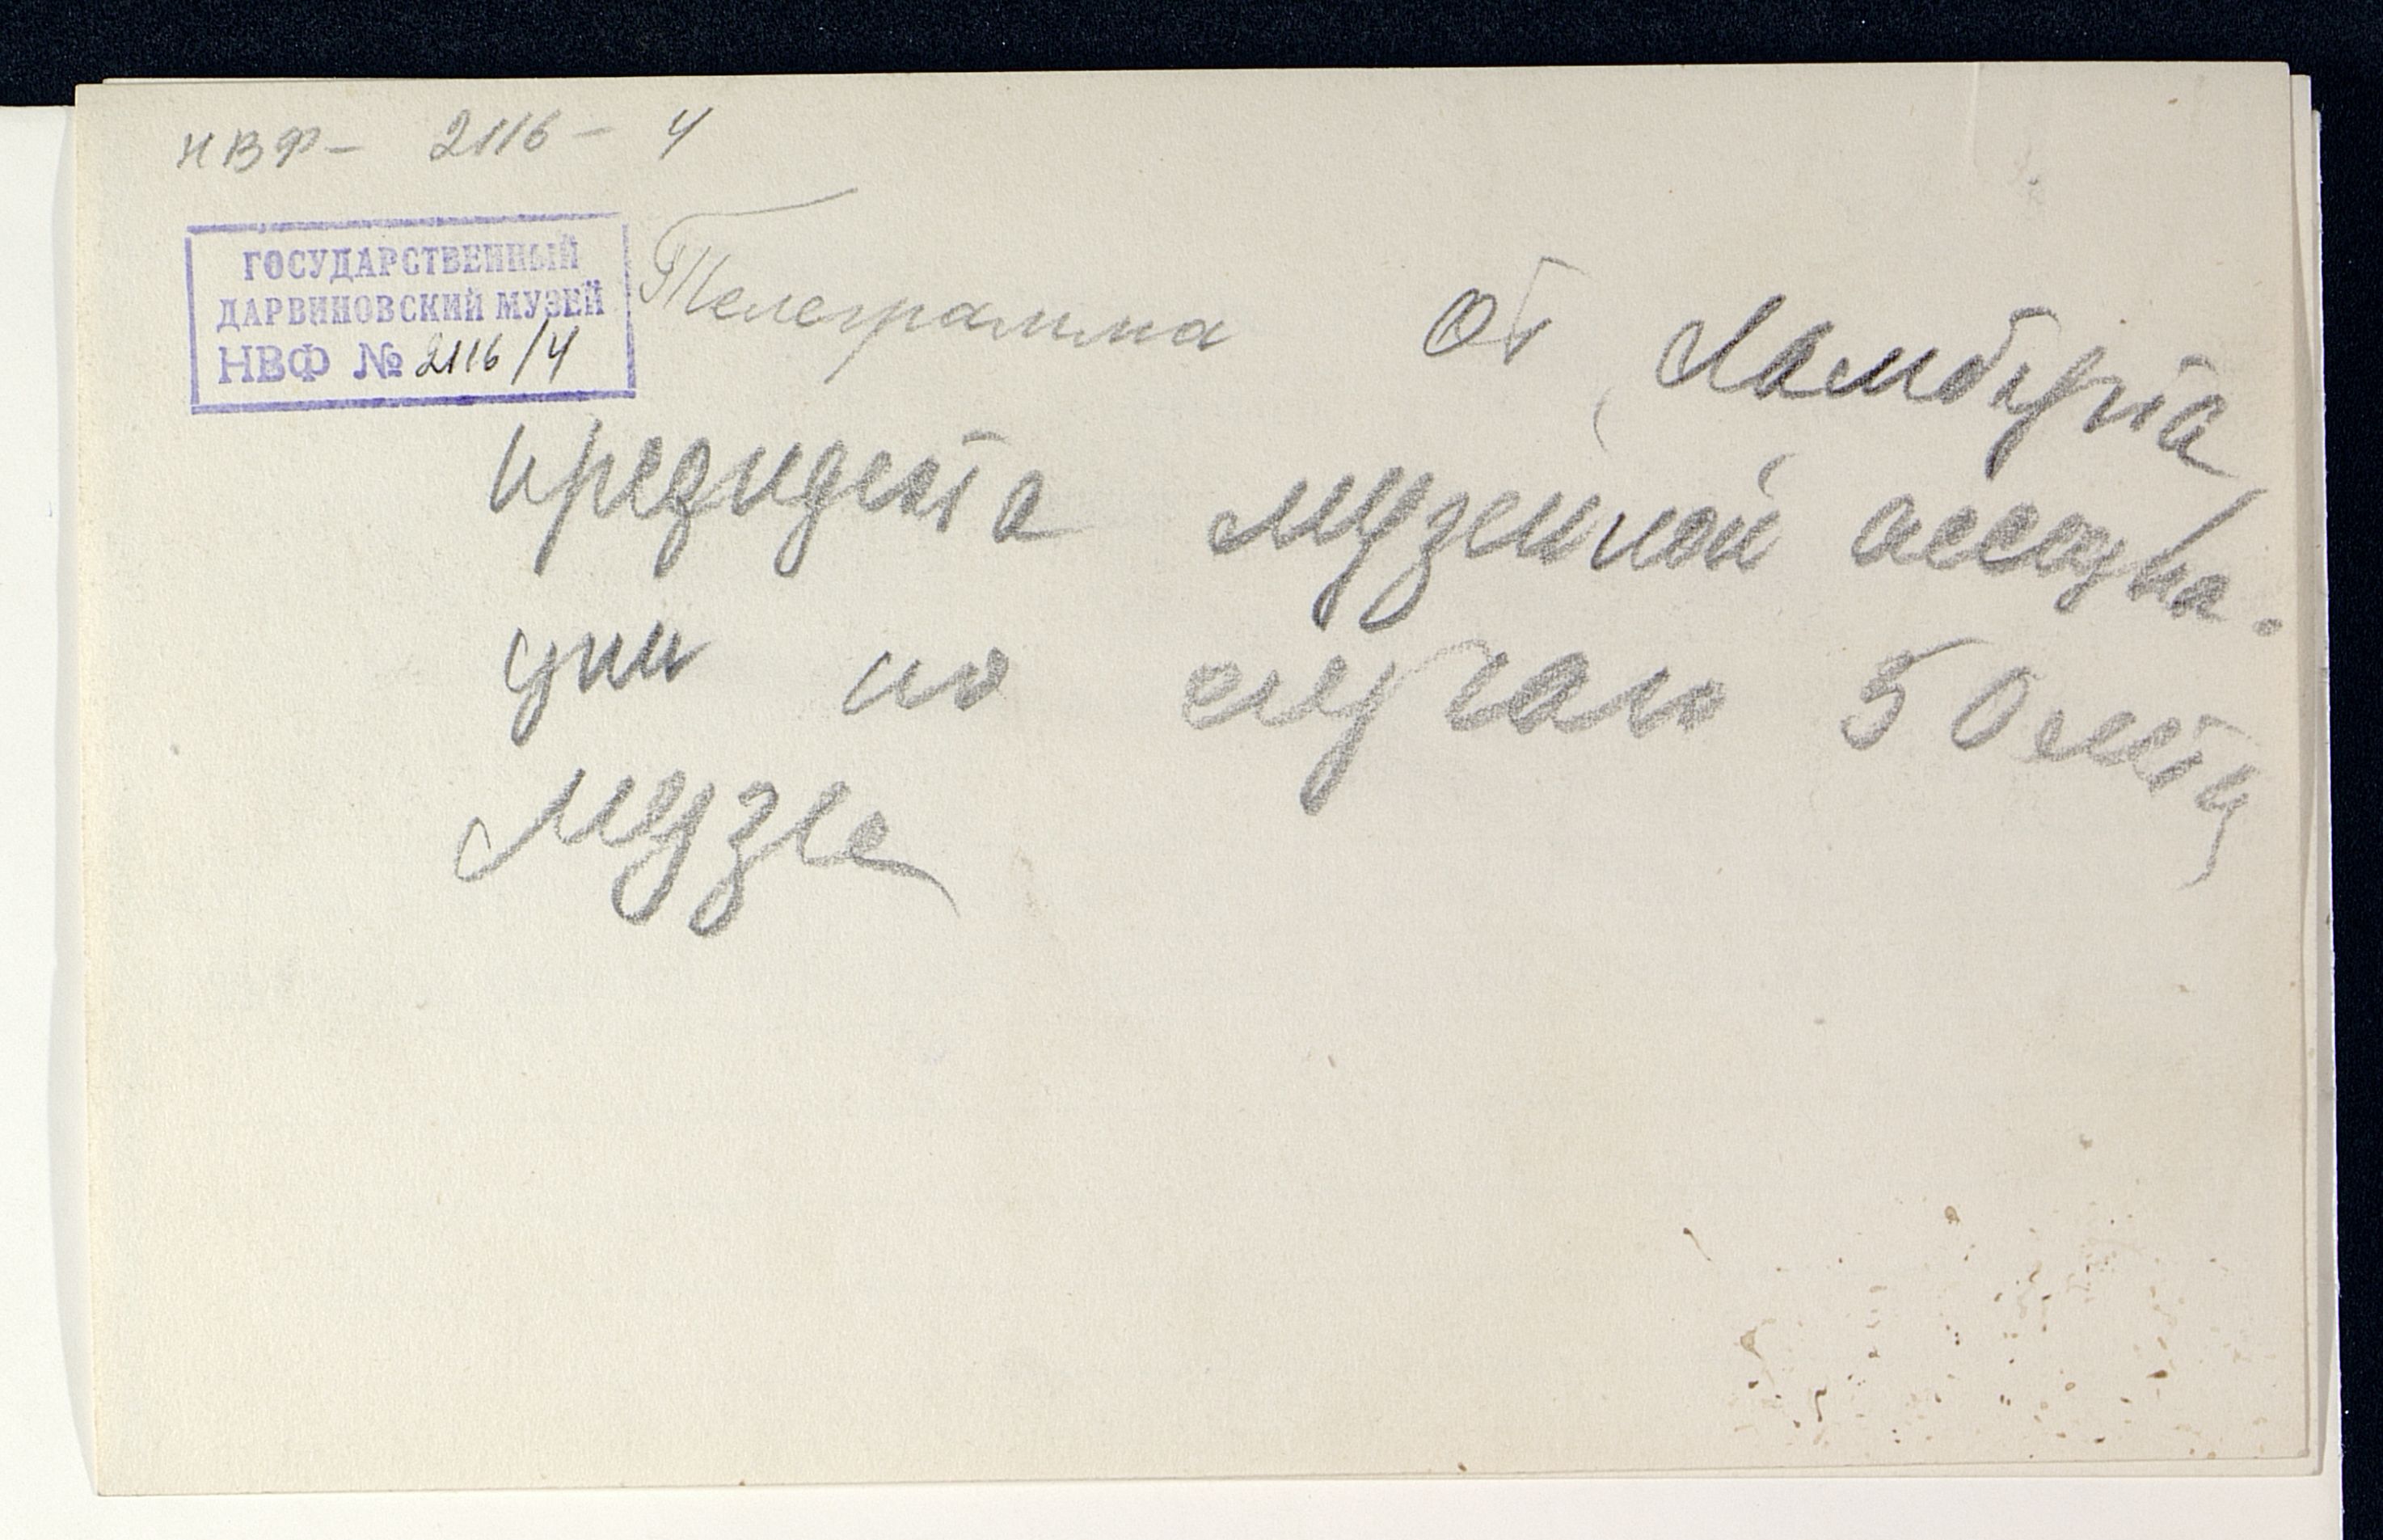 НВФ - 2116 - 4
ГОСУДАРСТВЕННЫЙ
ДАРВИНОВСКИЙ МУЗЕЙ
НВФ № 2116/4
Телеграмма от Ламберта
президента музейной ассоциа-
ции по случаю 50 летия
музея